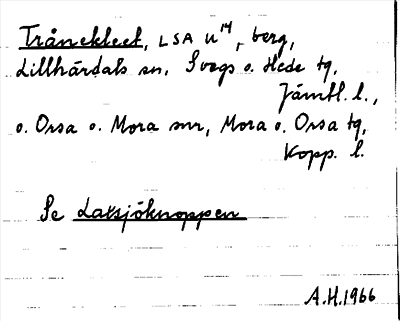 Trånekleet, LSA U¹⁴, berg,
Lillhärdals sn, Svegs o. Hede tg,
Jämtl. l.,
o. Orsa o. Mora snr, Mora o. Orsa tg,
Kopp. l.
Se Latsjöknoppen
A.H. 1966